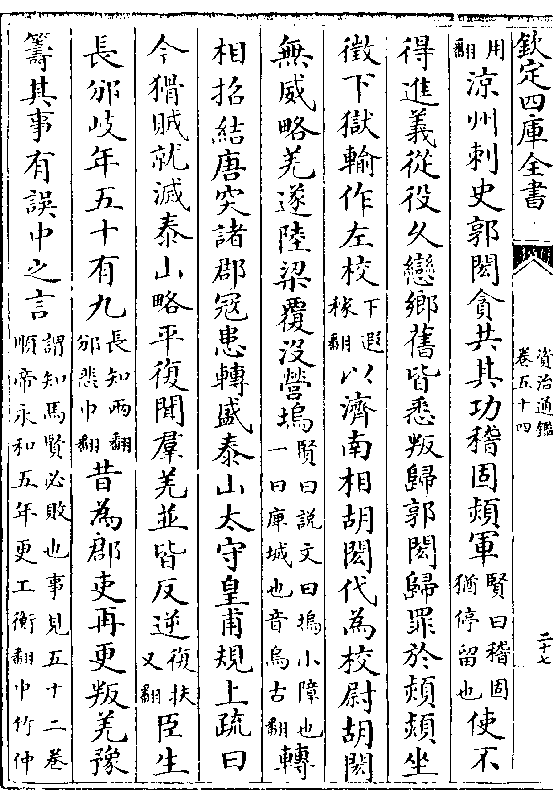 欽定四庫全書
資治通鑑
卷五十四
二十七
用
翻
涼州刺史郭閎貪共其功稽固熲軍
賢曰稽固
猶停留也
使不
得進義從役久戀鄉舊皆悉叛歸郭閎歸罪於熲熲坐
徵下獄輸作左校
下遐
稼翻
以濟南相胡閎代為校尉胡閎
無威略羌遂陸梁覆沒營塢
賢曰說文曰塢小障也
一曰庳城也音烏古翻
轉
相招結唐突諸郡寇患轉盛泰山太守皇甫規上疏曰
今猾賊就滅泰山略平復聞羣羌並皆反逆
復扶
又翻
臣生
長邠岐年五十有九
長知兩翻
邠悲巾翻
昔為郡吏再更叛羌豫
籌其事有誤中之言
謂知馬賢必敗也事見五十二卷
順帝永和五年更工衡翻中竹仲